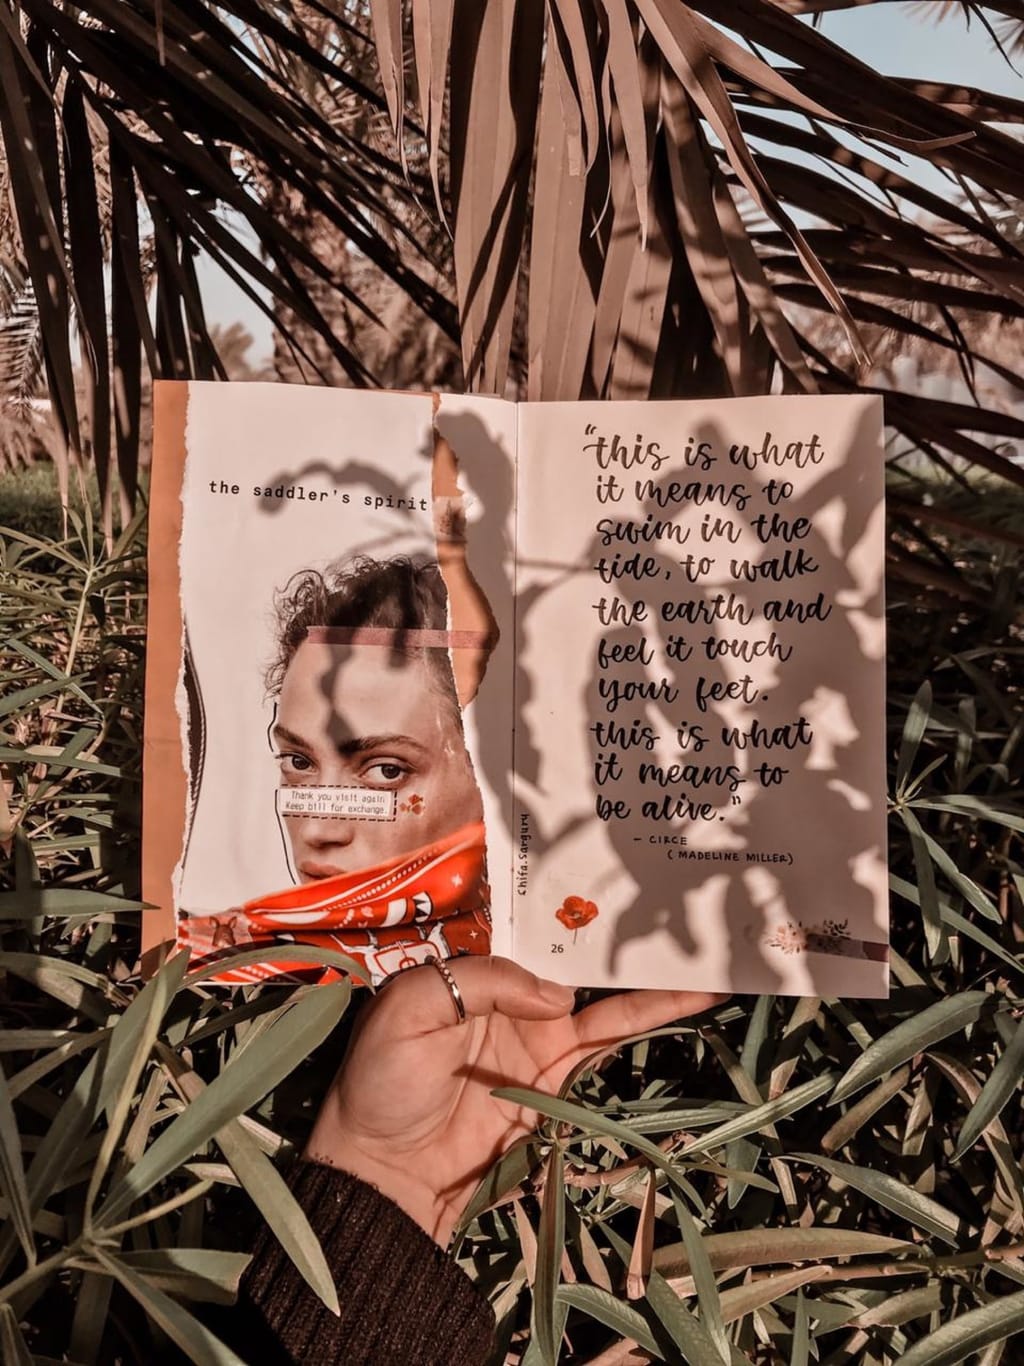 the saddler's spirit
Thank you visit again
Keep bill for exchange.
"this is what
it means to
swim in the
tide, to walk
the earth and
feel it touch
your feet.
this is what
it means to
be alive."
- CIRCE
(MADELINE MILLER)
chifa.sarguru
26